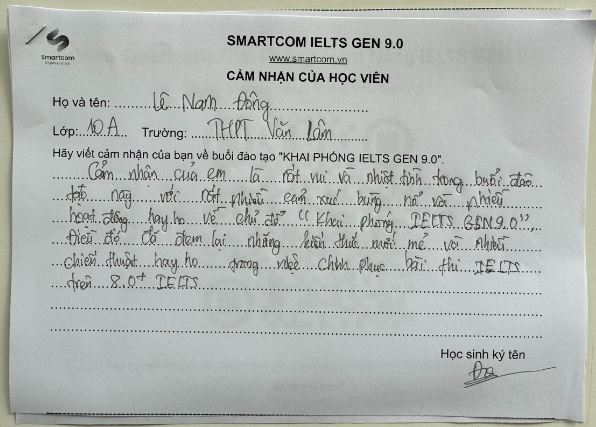 Smartcom
SMARTCOM IELTS GEN 9.0
www.smartcom.vn
CẢM NHẬN CỦA HỌC VIÊN
Họ và tên: Lê Nam Đông
Lớp: 10A Trường: THPT Văn Lâm
Hãy viết cảm nhận của bạn về buổi đào tạo "KHAI PHÓNG IELTS GEN 9.0".
Cảm nhận của em là rất vui và nhiệt tình trong buổi đào
tạo này với rất nhiều cảm xúc bùng nổ với nhiều
hoạt động hay ho về chủ đề "Khai phóng IELTS GEN 9.0",
Điều đó đã đem lại những kiến thức mới mẻ với nhiều
chiến thuật hay ho trong việc chinh phục bài thi IELTS
trên 8.0+ IELTS
Học sinh ký tên